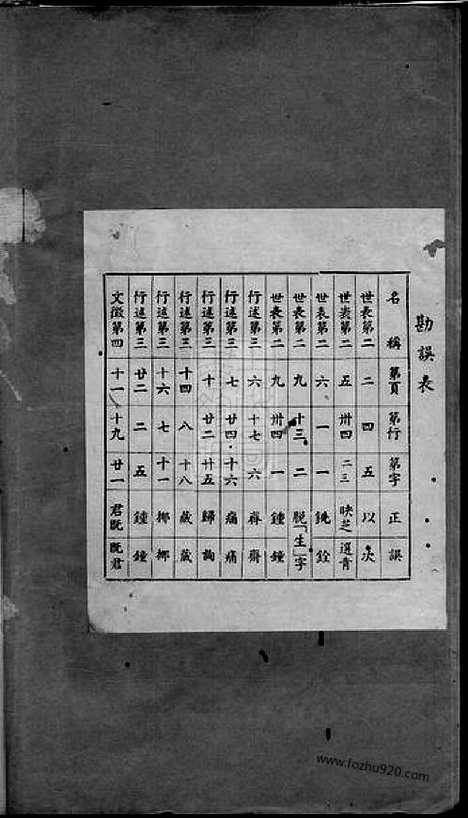 勘誤表
名稱 第頁 第行 第字 正 誤
世表第二 二 四 五 以 次
世表第二 五 卅四 二三 映芝 選青
世表第二 六 一 一 銑 銓
世表第二 九 十三 二 脫「生」字
世表第二 九 卅四 一 鍾 鐘
行述第三 六 十七 六
行述第三 七 廿四 十六
行述第三 十 廿二 廿五 歸 詢
行述第三 十四 八 十八
行述第三 十六 七 十一
行述第三 廿二 二 五 鍾 鐘
文徵第四 十一 十九 廿一 君既 既君
www.fozhu920.com